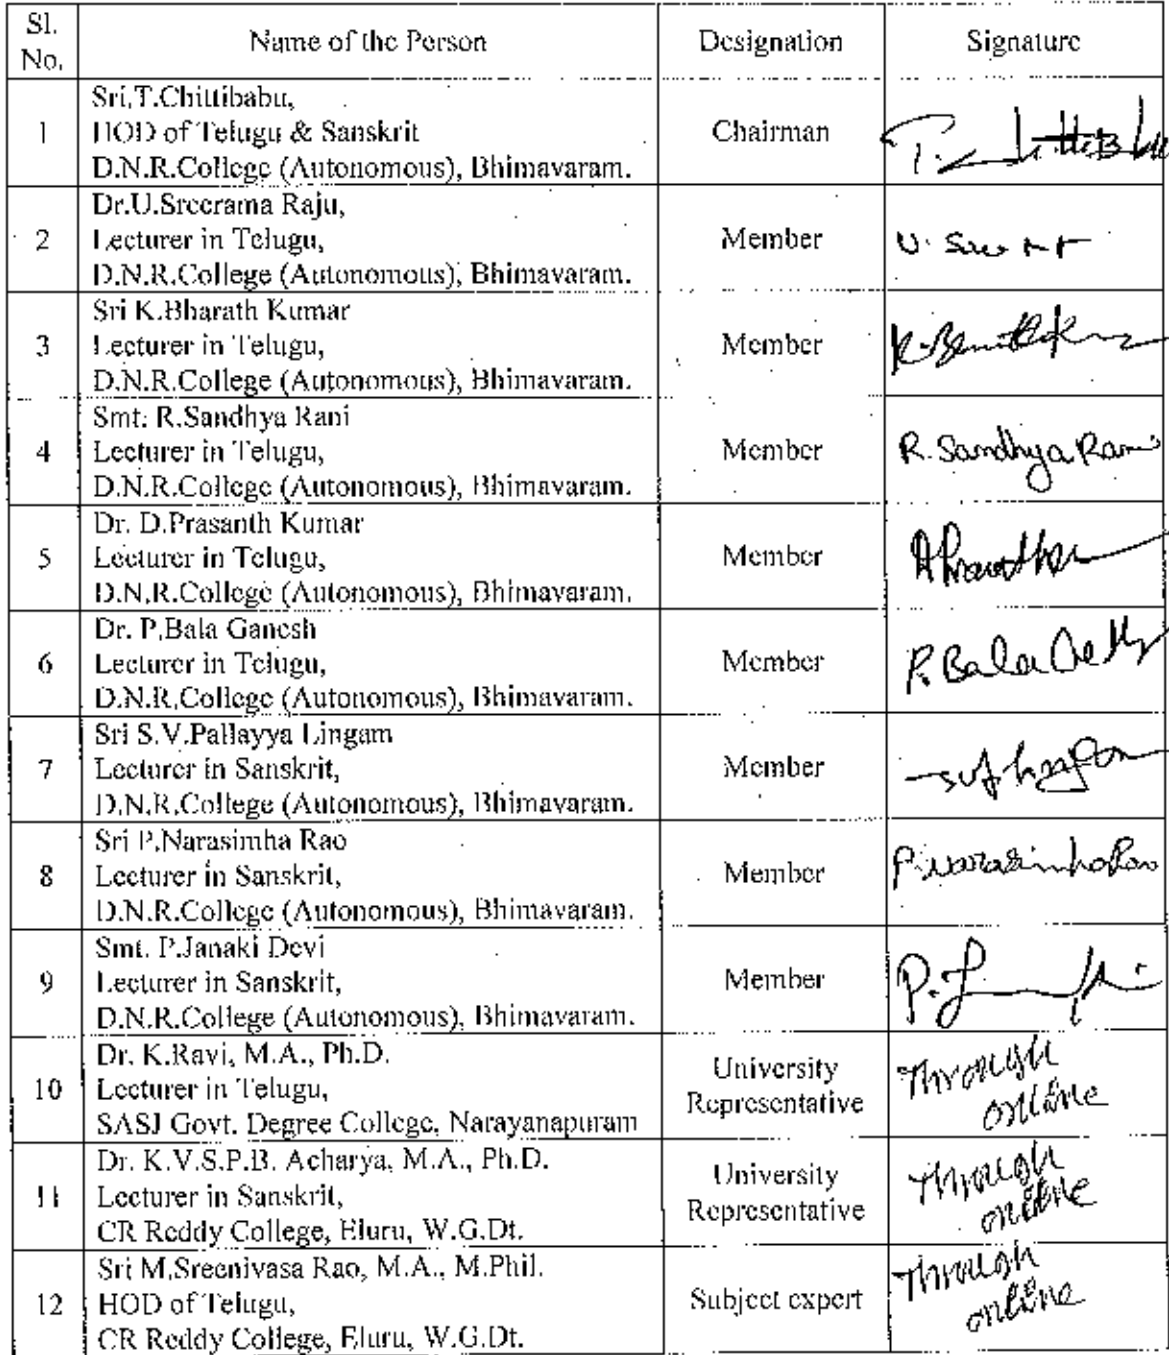 Sl. No. Name of the Person Designation Signature
1 Sri.T.Chittibabu, HOD of Telugu & Sanskrit D.N.R.College (Autonomous), Bhimavaram. Chairman
2 Dr.U.Sreerama Raju, Lecturer in Telugu, D.N.R.College (Autonomous), Bhimavaram. Member
3 Sri K.Bharath Kumar Lecturer in Telugu, D.N.R.College (Autonomous), Bhimavaram. Member
4 Smt. R.Sandhya Rani Lecturer in Telugu, D.N.R.College (Autonomous), Bhimavaram. Member R. Sandhya Rani
5 Dr. D.Prasanth Kumar Lecturer in Telugu, D.N.R.College (Autonomous), Bhimavaram. Member
6 Dr. P.Bala Ganesh Lecturer in Telugu, D.N.R.College (Autonomous), Bhimavaram. Member P. Bala
7 Sri S.V.Pallayya Lingam Lecturer in Sanskrit, D.N.R.College (Autonomous), Bhimavaram. Member
8 Sri P.Narasimha Rao Lecturer in Sanskrit, D.N.R.College (Autonomous), Bhimavaram. Member P. Narasimha Rao
9 Smt. P.Janaki Devi Lecturer in Sanskrit, D.N.R.College (Autonomous), Bhimavaram. Member
10 Dr. K.Ravi, M.A., Ph.D. Lecturer in Telugu, SASJ Govt. Degree College, Narayanapuram University Representative Through online
11 Dr. K.V.S.P.B. Acharya, M.A., Ph.D. Lecturer in Sanskrit, CR Reddy College, Eluru, W.G.Dt. University Representative Through online
12 Sri M.Sreenivasa Rao, M.A., M.Phil. HOD of Telugu, CR Reddy College, Eluru, W.G.Dt. Subject expert Through online